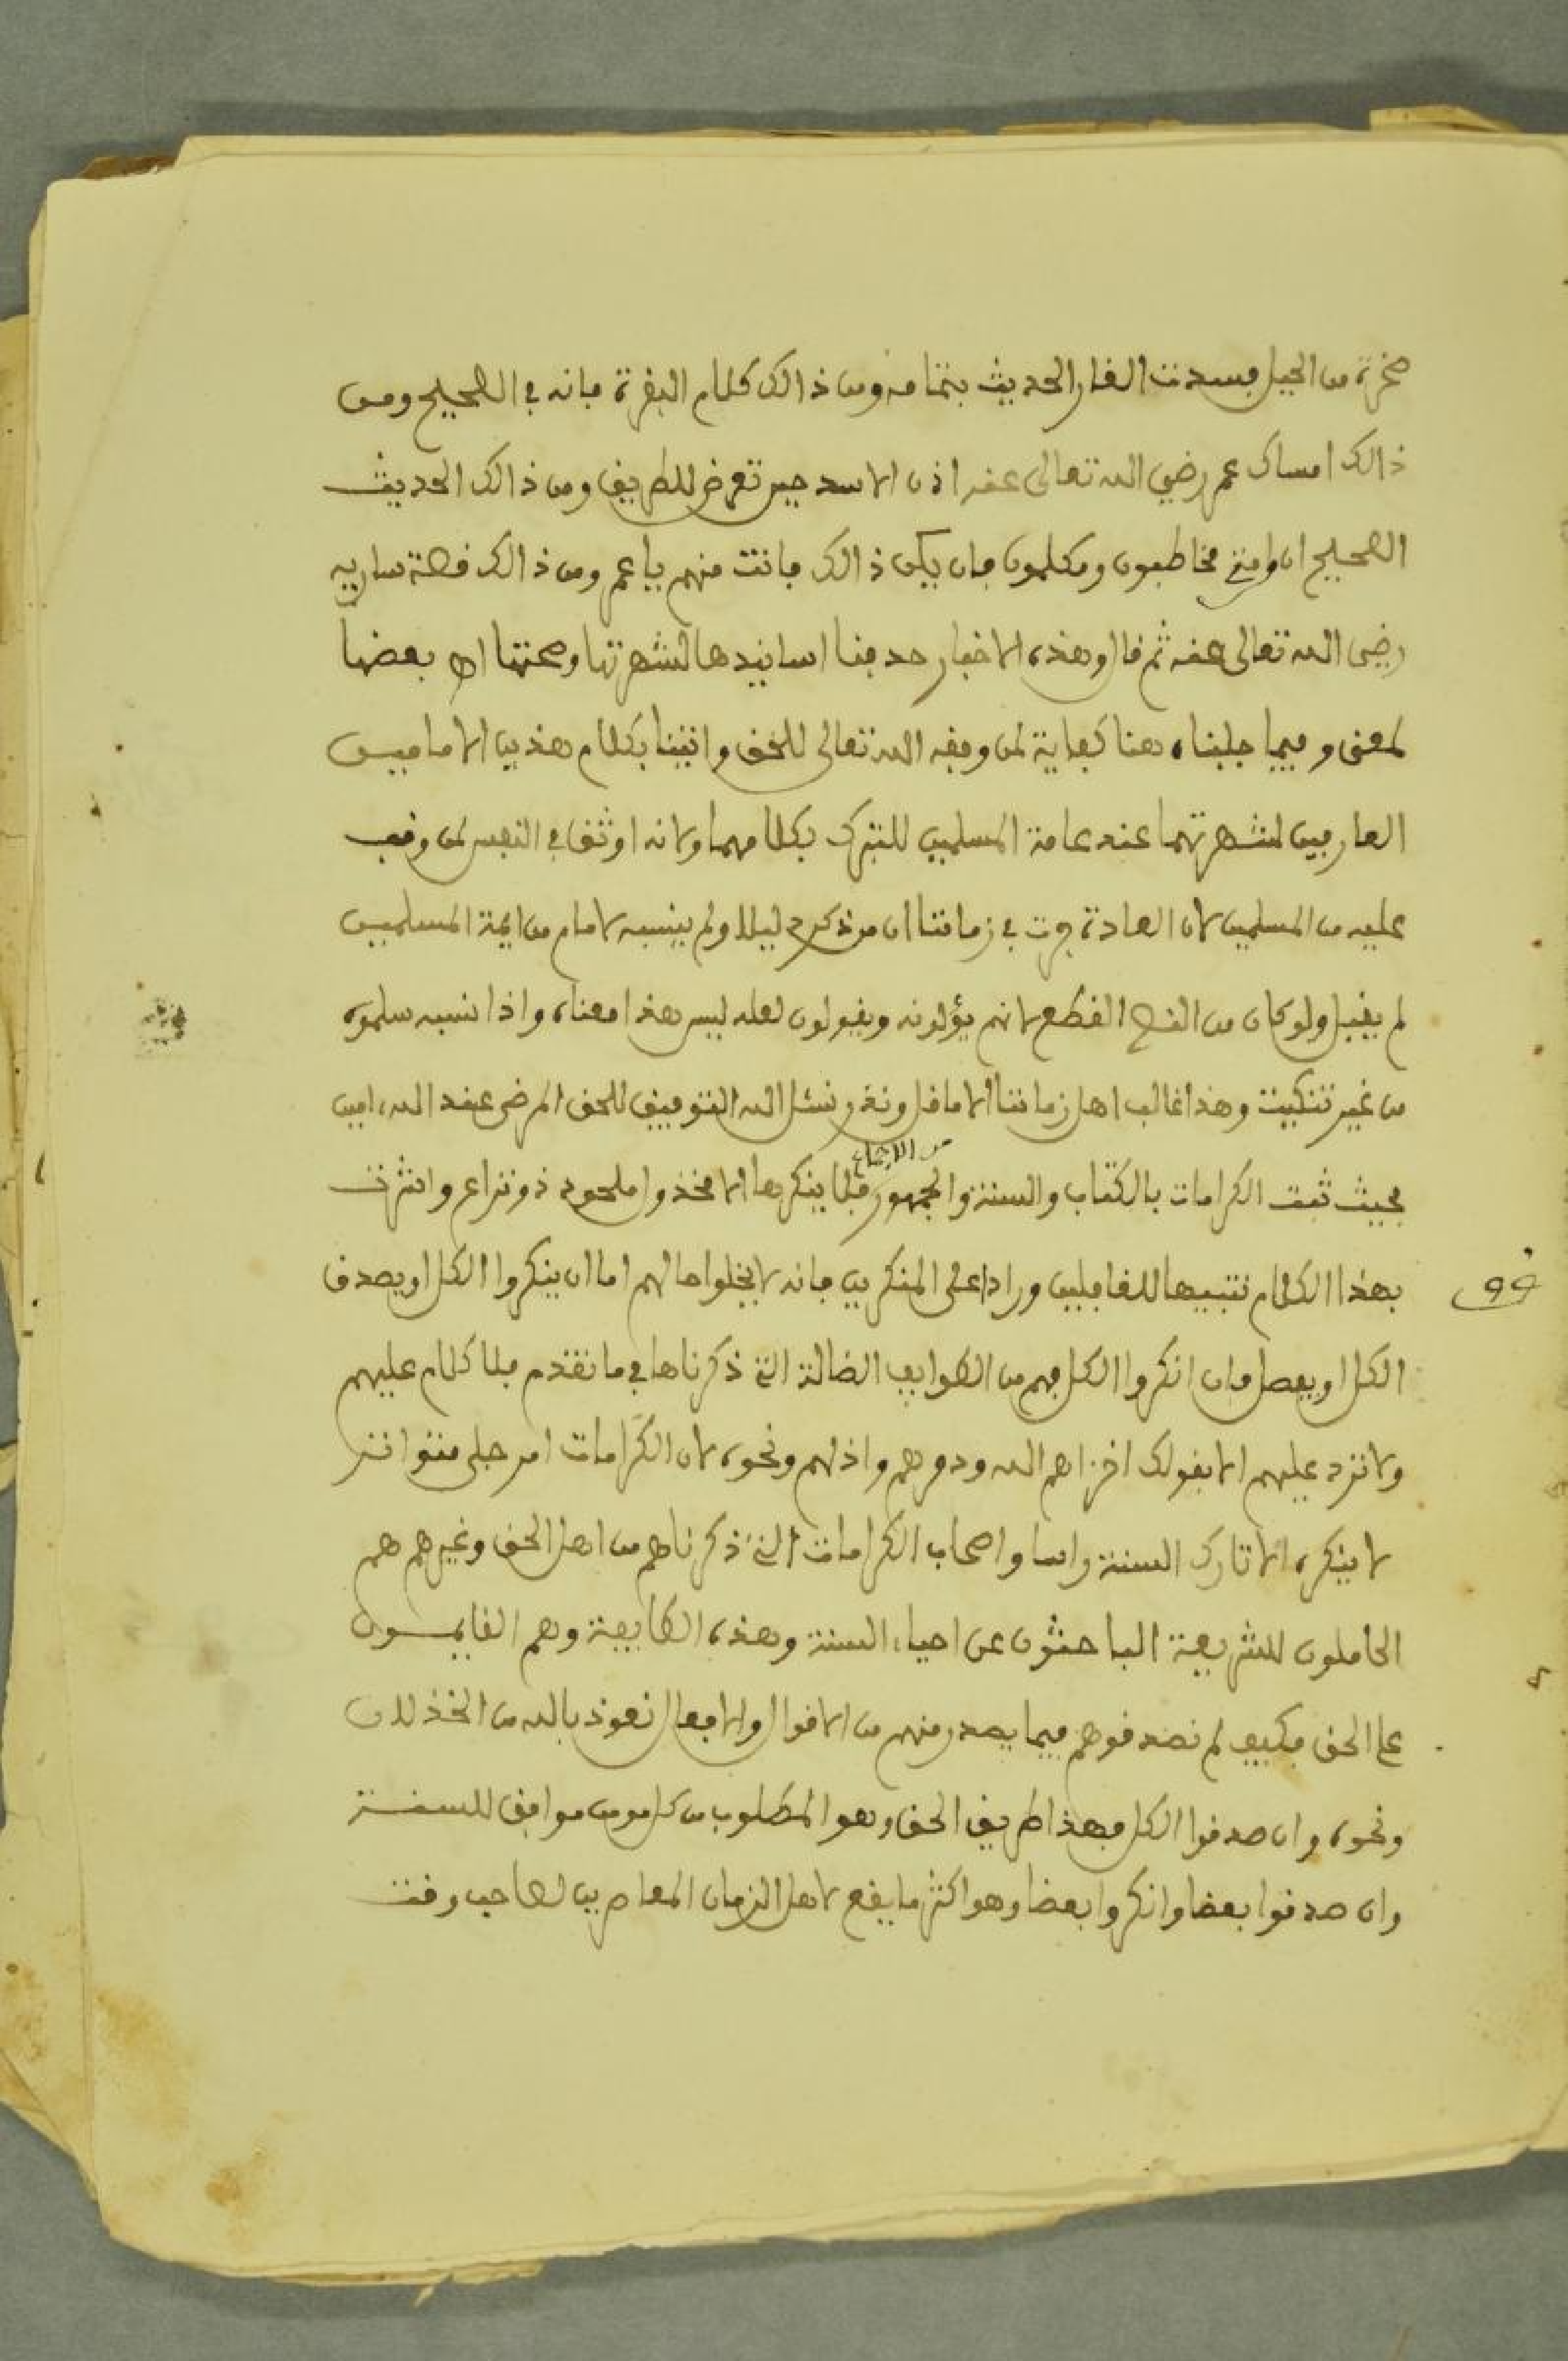 صخرة من الجبل فسدت الغار الحديث بتمامه ومن ذالك كلام البقرة فانه في الصحيح ومن
ذالك امساك عمر رضي الله تعالى عنه اذن الاسد حين تعرض للطريق ومن ذالك الحديث
الصحيح ان وامتي مخاطبون ومكلمون فان يكن ذالك فانت منهم ياعمر ومن ذالك قصة سارية
رضي الله تعالى عنه ثم قال وهذه الاخبار حدفنا اسانيدها لشهرتها وصحتها اه بعضها
لمعنى وفيما جلبناه هنا كفاية لمن وفقه الله تعالى للحق واتينا بكلام هذين الامامين
العارفين لشهرتهما عند عامة المسلمين للتبرك بكلامهما ولانه اوثق في النفس لمن وقف
عليه من المسلمين لان العادة جرت في زماننا ان من ذكر دليلا ولم ينسبه لامام من ايمة المسلمين
لم يقبل ولو كان من النص القطع لانهم يؤلونه ويقولون لعله ليس هذا معناه واذا نسبه سلموه
من غير تنكيت وهذا غالب اهل زماننا الا ما قل وندر نسئل الله التوفيق للحق المرضى عند الله ءامين
فحيث ثبت الكرامات بالكتاب والسنة والجمهور فلا ينكرها الا مخذول ملحود ذو نزاع واتثرت
من الاجماع
بهذا الكلام تنبيها للغافلين ورادا على المنكرين فانه لا يخلوا حالهم اما ان ينكروا الكل او يصدق
الكل او يفصل فان انكروا الكل فهم من الطوايف الضالة التي ذكرناها في ما تقدم فلا كلام عليهم
ولا نزد عليهم الا بقولك اخزاهم الله ودمرهم واذلهم ونحوه لان الكرامات امر جلى متواتر
لا ينكره الا تارك السنة راسا واصحاب الكرامات التي ذكرناهم من اهل الحق وغيرهم هم
الحاملون للشريعة الباحثون عن احياء السنة وهذه الطايفة وهم القايمون
على الحق فكيف لم تصدقوهم فيما يصدر منهم من الاقوال والافعال نعوذ بالله من الخذلان
ونحوه وان صدقوا الكل فهذا طريق الحق وهو المطلوب من كل مومن موافق للسنة
وان صدقوا بعضا وانكروا بعضا وهو اكثر ما يقع لاهل الزمان المعاصرين لصاحب وقت